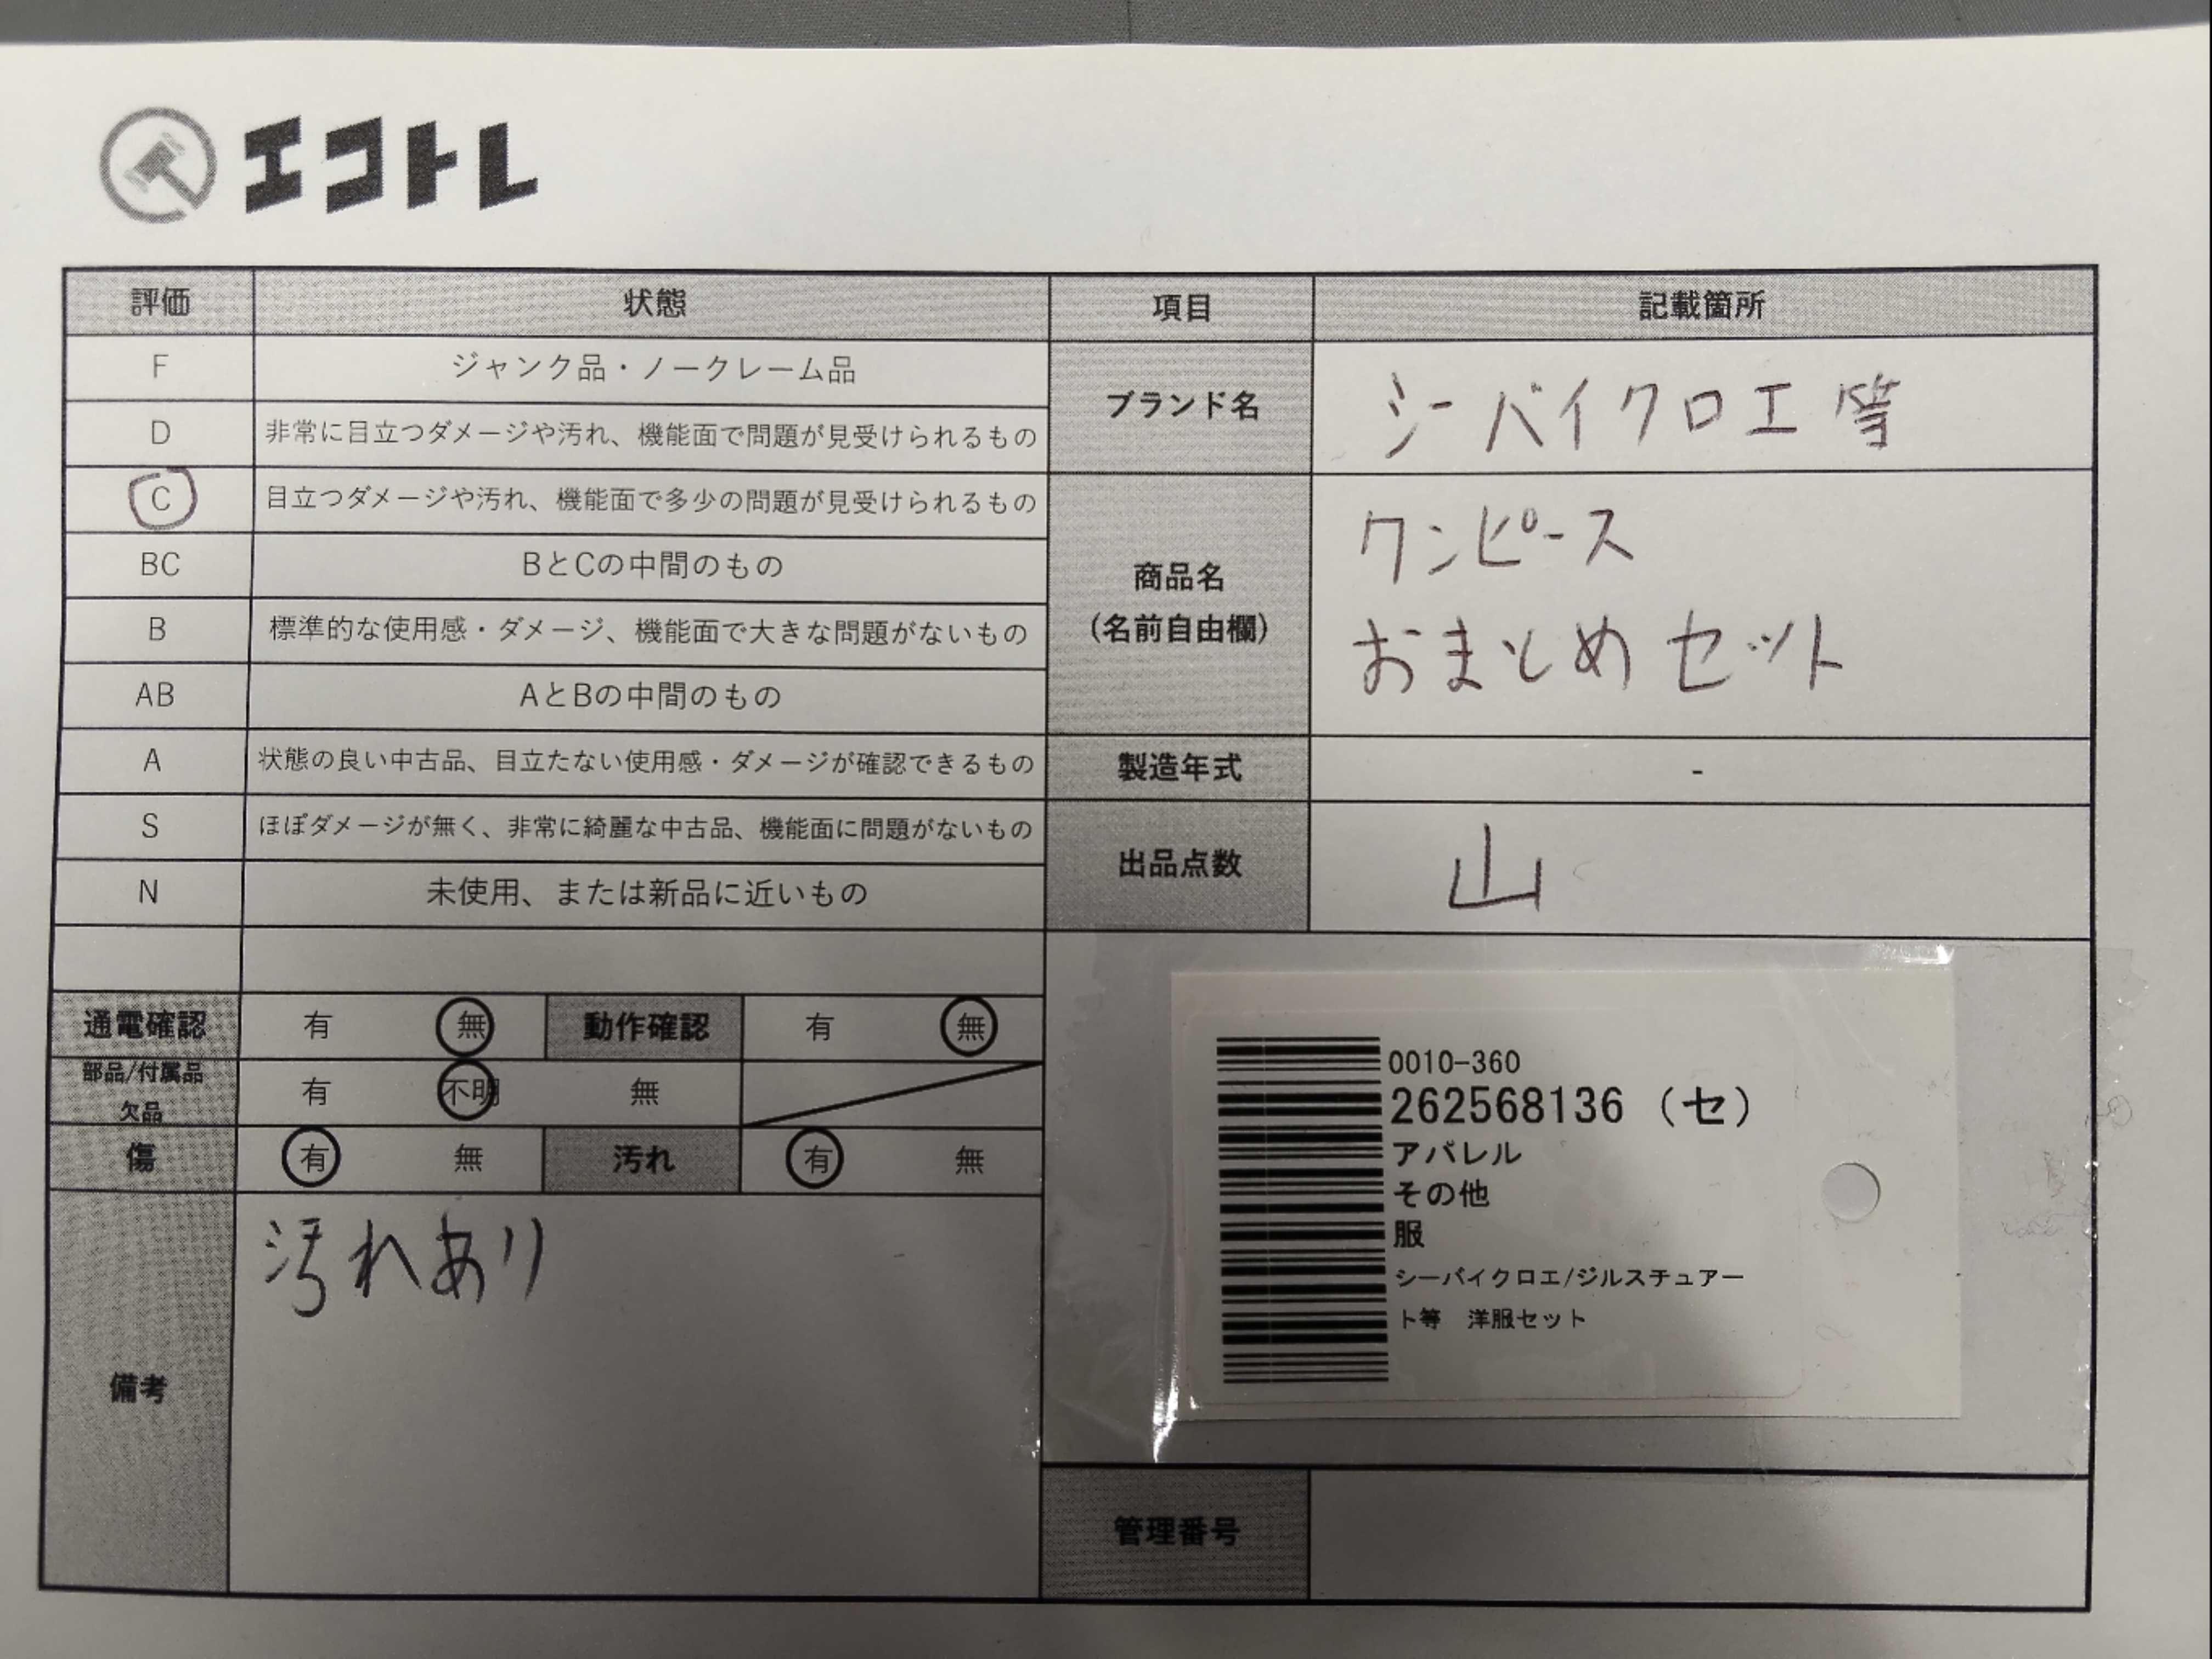 エコトレ
評価 状態 項目 記載箇所
F ジャンク品・ノークレーム品
D 非常に目立つダメージや汚れ、機能面で問題が見受けられるもの
C 目立つダメージや汚れ、機能面で多少の問題が見受けられるもの
BC BとCの中間のもの
B 標準的な使用感・ダメージ、機能面で大きな問題がないもの
AB AとBの中間のもの
A 状態の良い中古品、目立たない使用感・ダメージが確認できるもの
S ほぼダメージが無く、非常に綺麗な中古品、機能面に問題がないもの
N 未使用、または新品に近いもの
ブランド名 シーバイクロエ等
商品名
(名前自由欄)
ワンピース
おまとめセット
製造年式 -
出品点数 山
通電確認 有 無 動作確認 有 無
部品/付属品
欠品
有 不明 無
傷 有 無 汚れ 有 無
備考
汚れあり
0010-360
262568136（セ）
アパレル
その他
服
シーバイクロエ/ジルスチュアー
ト等 洋服セット
管理番号